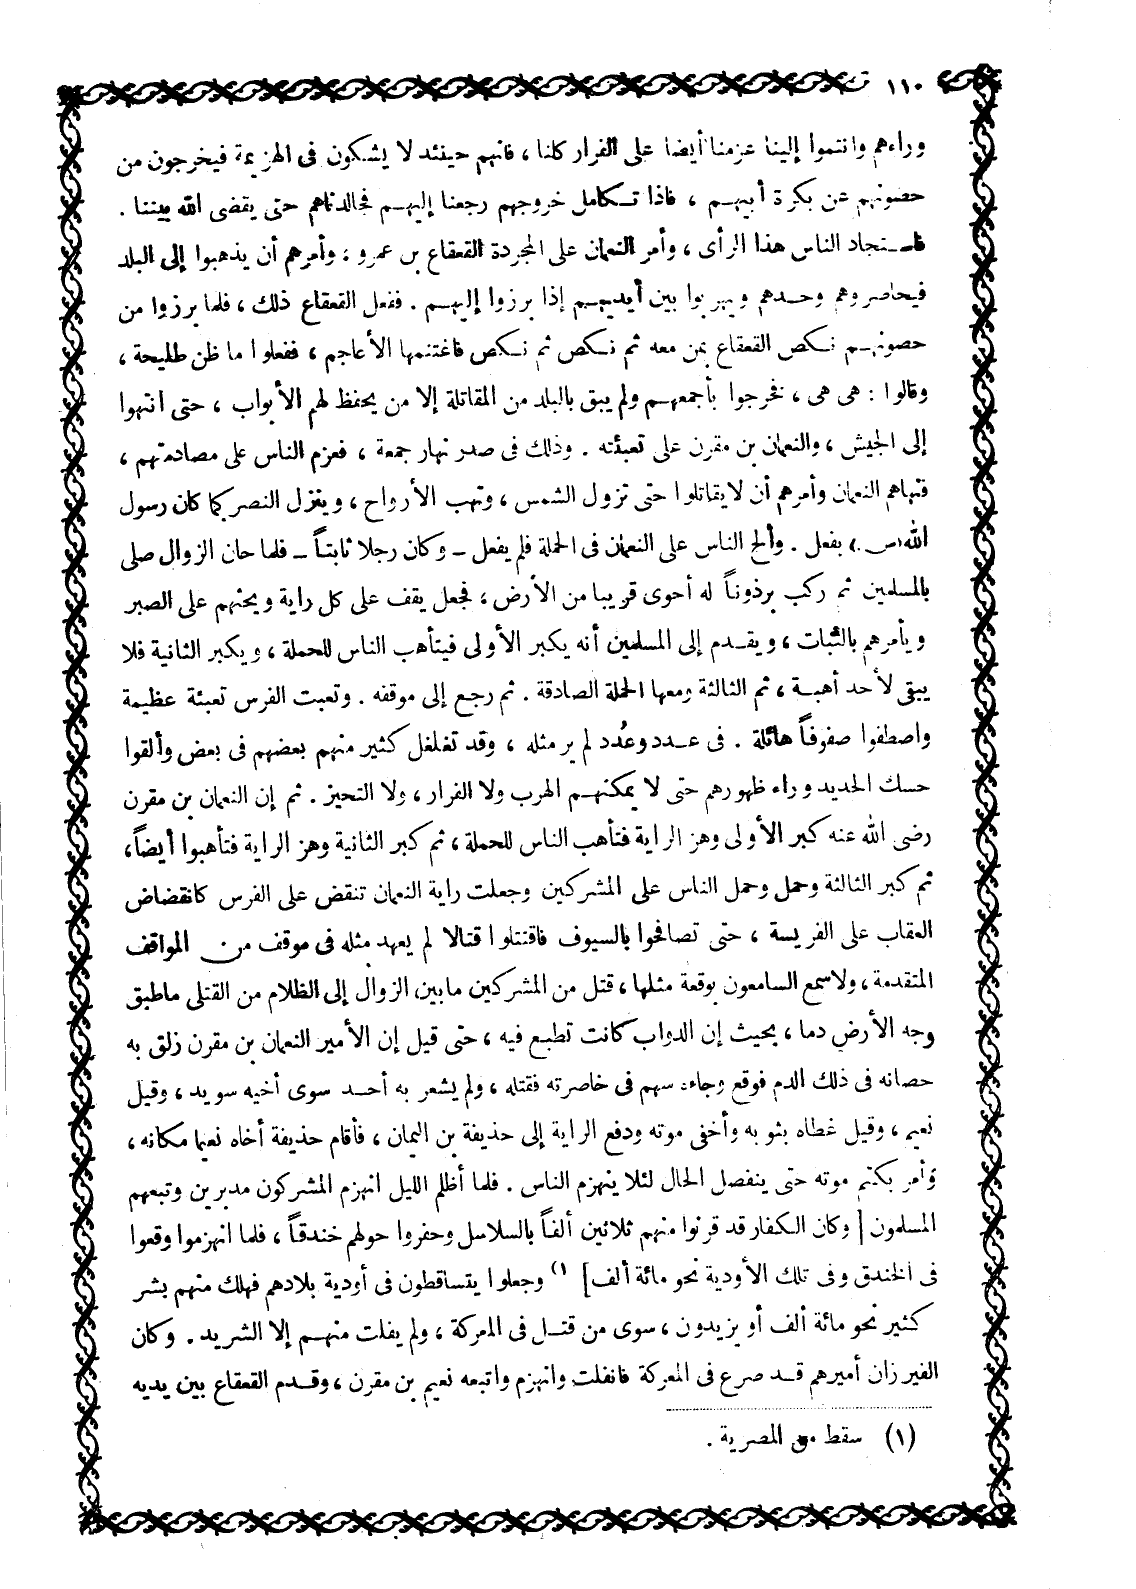 ١١٠
وراءهم وانتموا إلينا عزمنا أيضا على الفرار كلنا ، فانهم حينئذ لا يشكون فى الهزيمة فيخرجون من
حصونهم عن بكرة أبيهم ، فاذا تكامل خروجهم رجعنا إليهم فجالدناهم حتى يقضى الله بيننا .
فاستجاد الناس هذا الرأى ، وأمر النعمان على المجردة القعقاع بن عمرو ، وأمرهم أن يذهبوا إلى البلد
فيحاصروهم وحدهم ويهربوا بين أيديهم إذا برزوا إليهم . ففعل القعقاع ذلك ، فلما برزوا من
حصونهم نكص القعقاع بمن معه ثم نكص ثم نكص فاغتنمها الأعاجم ، ففعلوا ما ظن طليحة ،
وقالوا : هى هى ، فخرجوا بأجمعهم ولم يبق بالبلد من المقاتلة إلا من يحفظ لهم الأبواب ، حتى انتهوا
إلى الجيش ، والنعمان بن مقرن على تعبئته . وذلك فى صدر نهار جمعة ، فعزم الناس على مصادمتهم ،
فنهاهم النعمان وأمرهم أن لا يقاتلوا حتى تزول الشمس ، وتهب الأرواح ، وينزل النصر كما كان رسول
الله (س) يفعل . وألح الناس على النعمان فى الحملة فلم يفعل - وكان رجلا ثابتاً - فلما حان الزوال صلى
بالمسلمين ثم ركب برذوناً له أحوى قريبا من الأرض ، فجعل يقف على كل راية ويحثهم على الصبر
ويأمرهم بالثبات ، ويقدم إلى المسلمين أنه يكبر الأولى فيتأهب الناس للحملة ، ويكبر الثانية فلا
يبقى لأحد أهبة ، ثم الثالثة ومعها الحملة الصادقة . ثم رجع إلى موقفه . وتعبت الفرس تعبئة عظيمة
واصطفوا صفوفاً هائلة . فى عدد وعُدد لم ير مثله ، وقد تغلغل كثير منهم بعضهم فى بعض وألقوا
حسك الحديد وراء ظهورهم حتى لا يمكنهم الهرب ولا الفرار ، ولا التحيز . ثم إن النعمان بن مقرن
رضى الله عنه كبر الأولى وهز الراية فتأهب الناس للحملة ، ثم كبر الثانية وهز الراية فتأهبوا أيضاً ،
ثم كبر الثالثة وحمل وحمل الناس على المشركين وجعلت راية النعمان تنقض على الفرس كانقضاض
العقاب على الفريسة ، حتى تصافحوا بالسيوف فاقتتلوا قتالا لم يعهد مثله فى موقف من المواقف
المتقدمة ، ولا سمع السامعون بوقعة مثلها ، قتل من المشركين ما بين الزوال إلى الظلام من القتلى ما طبق
وجه الأرض دما ، بحيث إن الدواب كانت تطبع فيه ، حتى قيل إن الأمير النعمان بن مقرن زلق به
حصانه فى ذلك الدم فوقع وجاءه سهم فى خاصرته فقتله ، ولم يشعر به أحد سوى أخيه سويد ، وقيل
نعيم ، وقيل غطاه بثوبه وأخفى موته ودفع الراية إلى حذيفة بن اليمان ، فأقام حذيفة أخاه نعيما مكانه ،
وأمر بكتم موته حتى ينفصل الحال لئلا ينهزم الناس . فلما أظلم الليل انهزم المشركون مدبرين وتبعهم
المسلمون [ وكان الكفار قد قرنوا منهم ثلاثين ألفاً بالسلاسل وحفروا حولهم خندقاً ، فلما انهزموا وقعوا
فى الخندق وفى تلك الأودية نحو مائة ألف ] (١ وجعلوا يتساقطون فى أودية بلادهم فهلك منهم بشر
كثير نحو مائة ألف أو يزيدون ، سوى من قتل فى المعركة ، ولم يفلت منهم إلا الشريد . وكان
الفيرزان أميرهم قد صرع فى المعركة فانفلت وانهزم واتبعه نعيم بن مقرن ، وقدم القعقاع بين يديه
(١) سقط من المصرية .